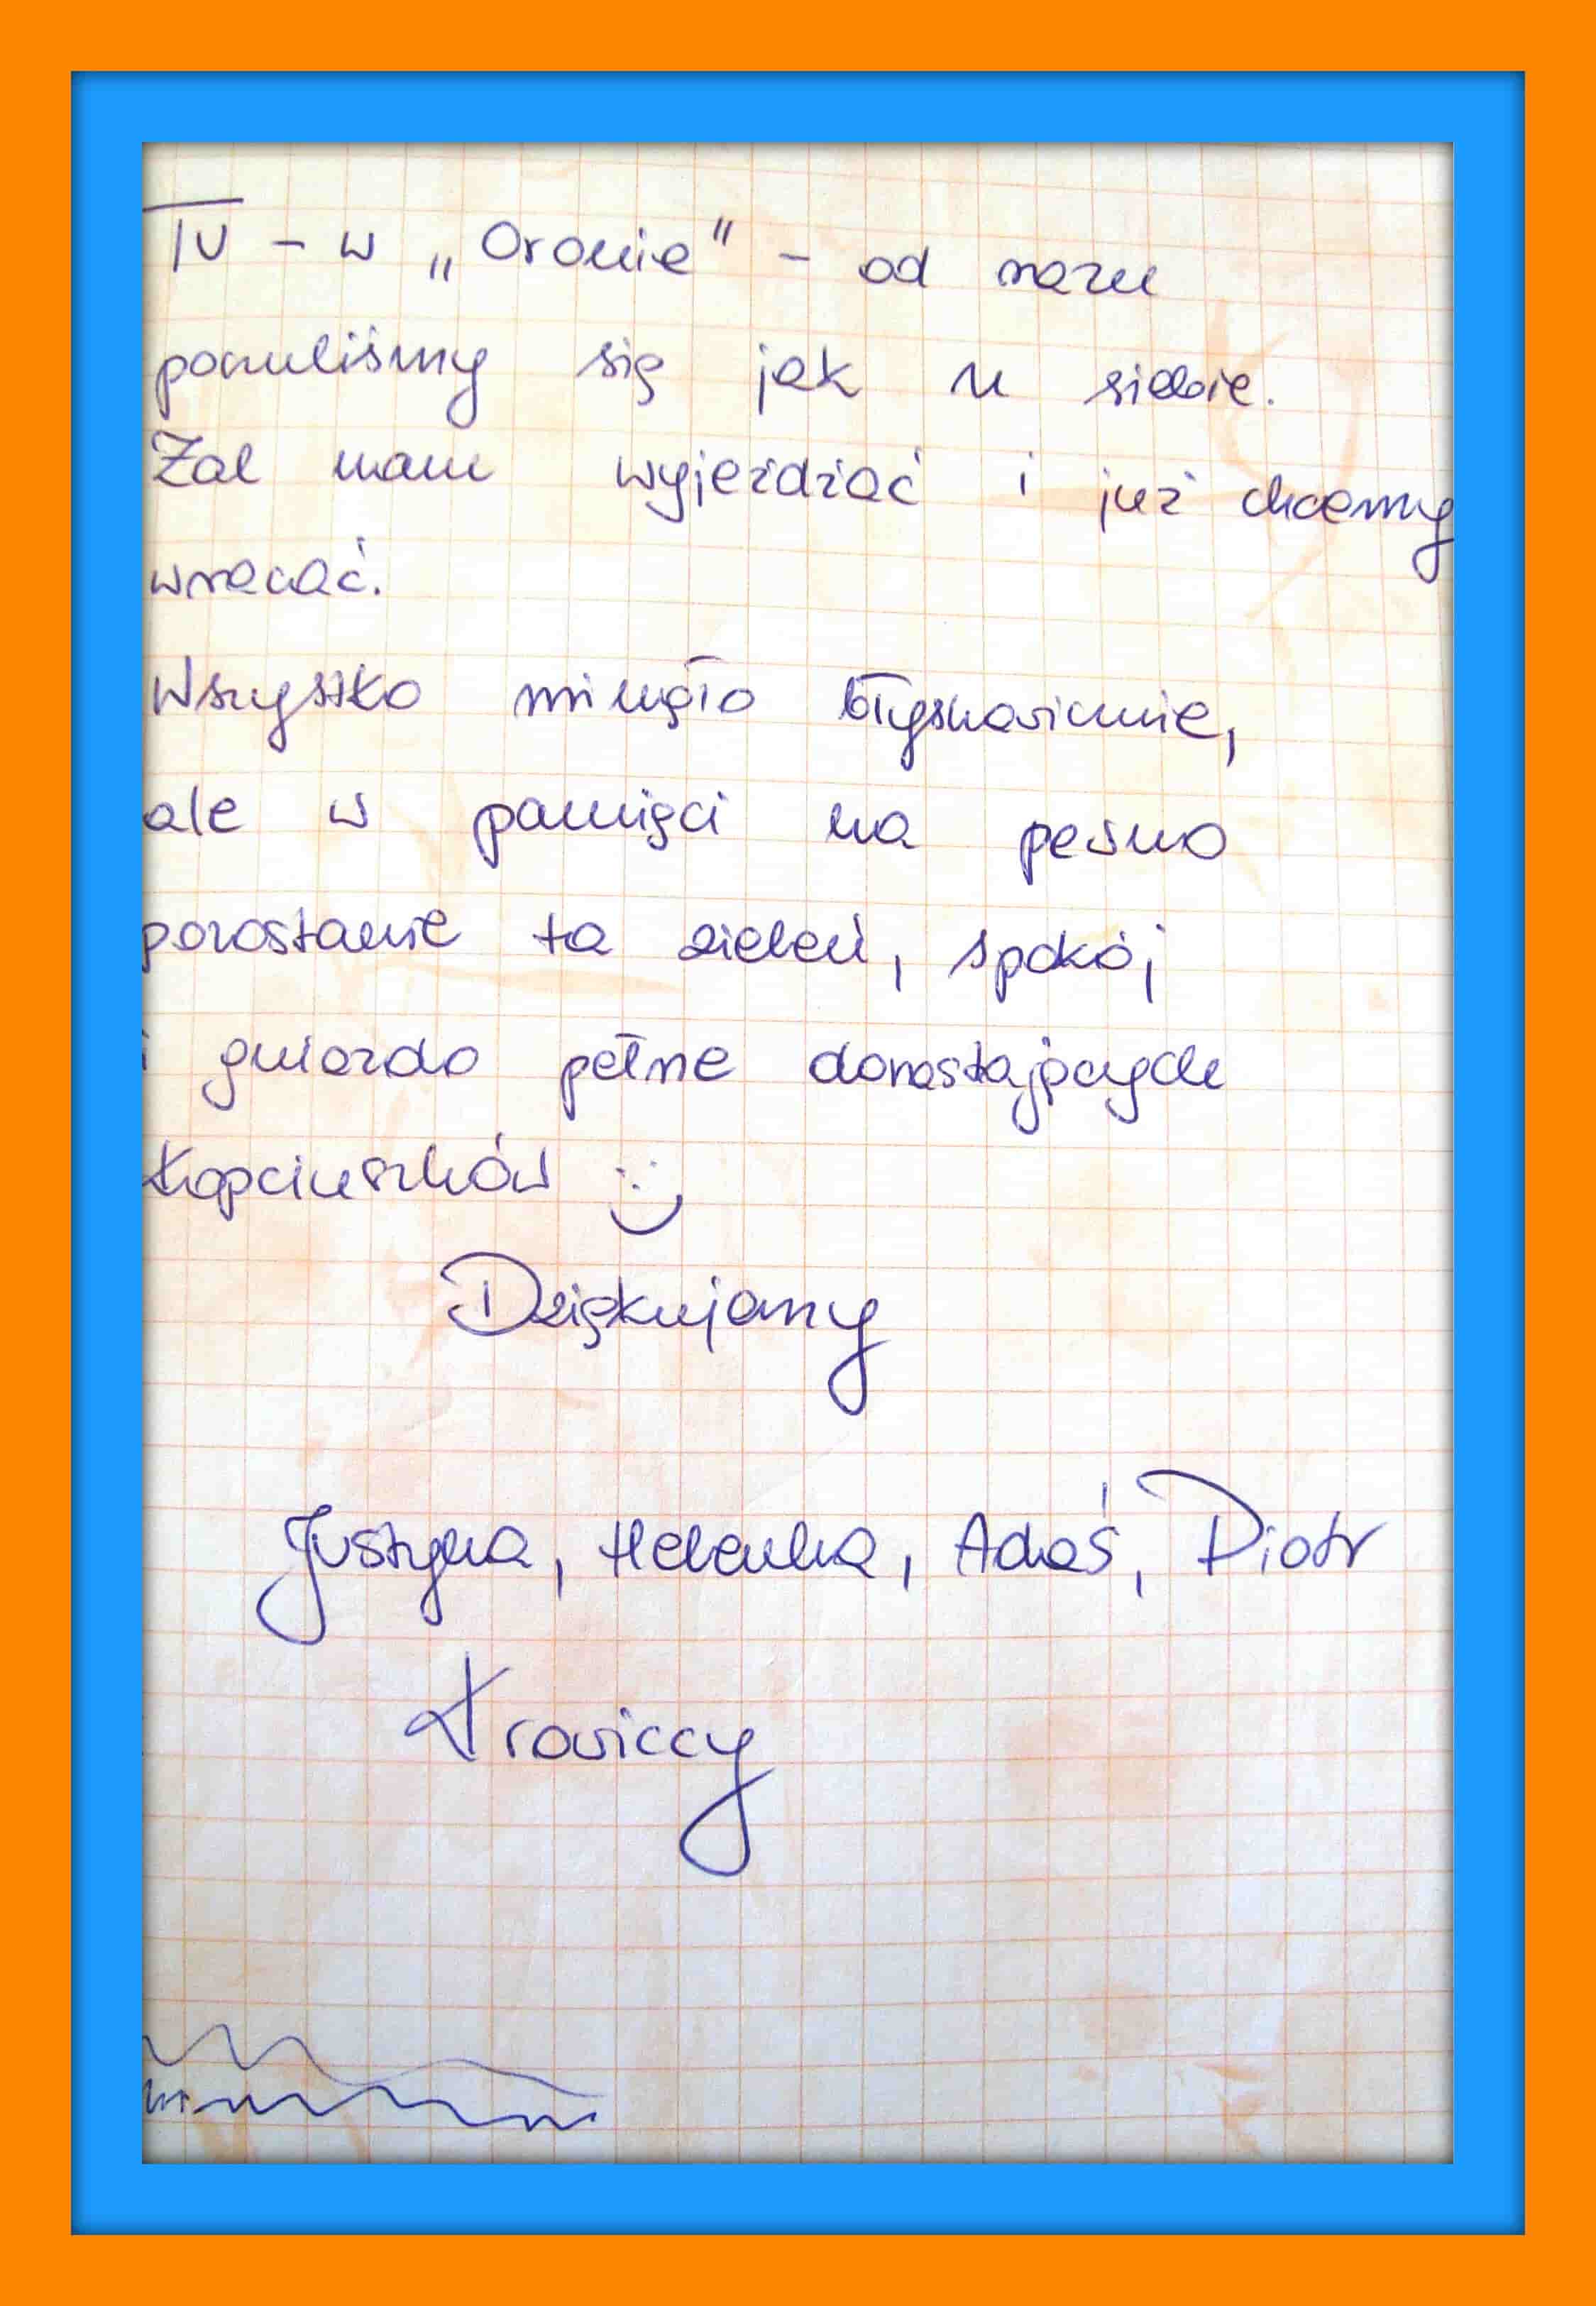 TU – w „Oronie" – od razu
poczuliśmy się jak u siebie.
Żal nam wyjeżdżać i już chcemy
wracać.
Wszystko minęło błyskawicznie,
ale w pamięci na pewno
pozostanie ta zieleń, spokój
i gniazdo pełne dorastających
kopciuszków :)
Dziękujemy
Justyna, Helenka, Adaś, Piotr
Krawiccy